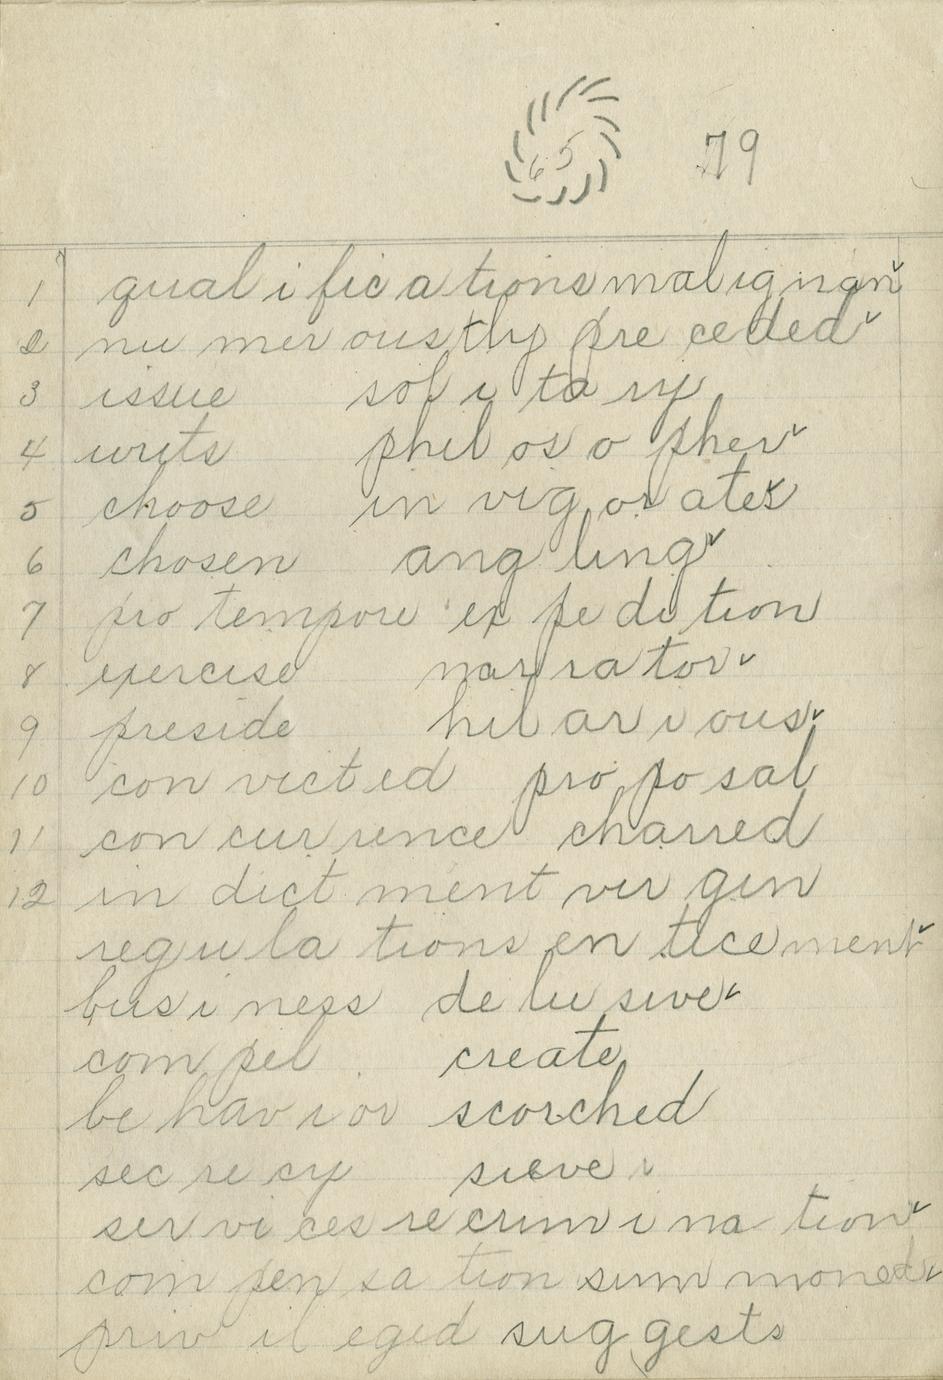 65 79
1 qualifications malignant
2 nu mer ously pre ceded
3 issue sol i ta ry
4 writs phil os o pher
5 choose in vig or ates
6 chosen ang ling
7 pro tempore ex pe di tion
8 exercise nar ra tor
9 preside hil ar i ous
10 con vict ed pro po sal
11 con cur rence charred
12 in dict ment vir gin
reg u la tions en tice ment
bus i ness de lu sive
com pel create
be hav i or scorched
sec re cy sieve
ser vi ces re crim i na tion
com pen sa tion sum moned
priv il eged sug gests